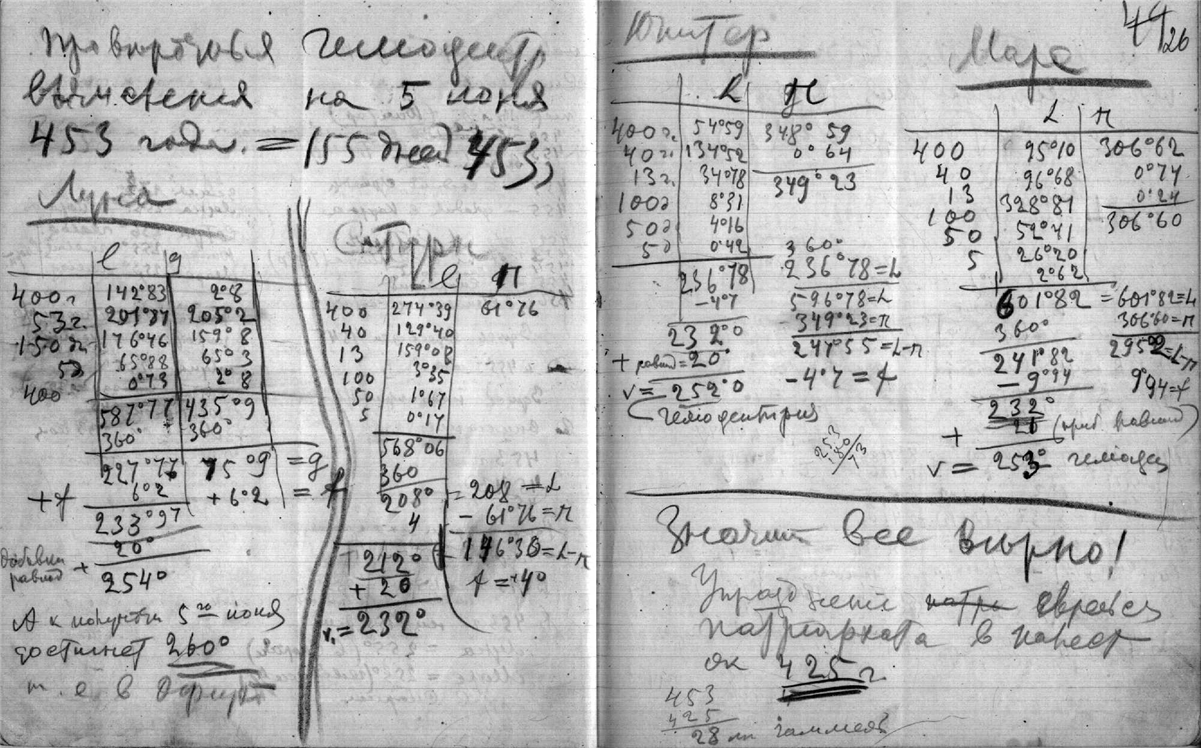 Провърочныя гелиоцентр
вычисления на 5 июня
453 года. = 155 дней 453,
Луна
l g
400 г 142°83 2°8
53 г. 201°37 205°2
150 д. 176°46 159°8
5д 65°88 65°3
400 0°73 2°8
587°77 435°9
360° 360°
227°77 75°9 = g
+f 6°2 + 6°2 = f
233°97
20°
добавки равнод +
254°
А к полудни 5го июня
достигнет 260°
т. е в
Сатурн
L π
400 274°39 61°76
40 129°40
13 159°08
100 3°35
50 1°67
5 0°17
568°06
360
208° = 208 = L
4 - 61°76 = π
+ 212° 146°30 = L-π
+ 20 f = +4°
v = 232°
Юпитер
L π
400 г. 54°59 348° 59
40 г. 134°52 0° 64
13 г. 34°78 349° 23
100д 8°31
50д 4°16
5д 0°42 360°
236°78 236°78 = L
-4°7 596°78 = L
232°0 - 349°23 = π
+ равнод = 20° 247°55 = L-π
v = 252°0 -4°7 = f
гелиоцентрия
253
180
73
44/26
Марс
L π
400 95°10 306°62
40 96°68 0°74
13 328°81 0°24
100 52°41 306°60
50 26°20
5 2°62
601°82 = 601°82 = L
360° 306°60 = π
241°82 295°2 = L-π
- 9°94 9°94 = f
232°
+ 20 (приб. равнод)
v = 253° гелиоцен
Значит все върно!
Упразднение еврейск
патриархата в
ок 425 г.
453
425
28